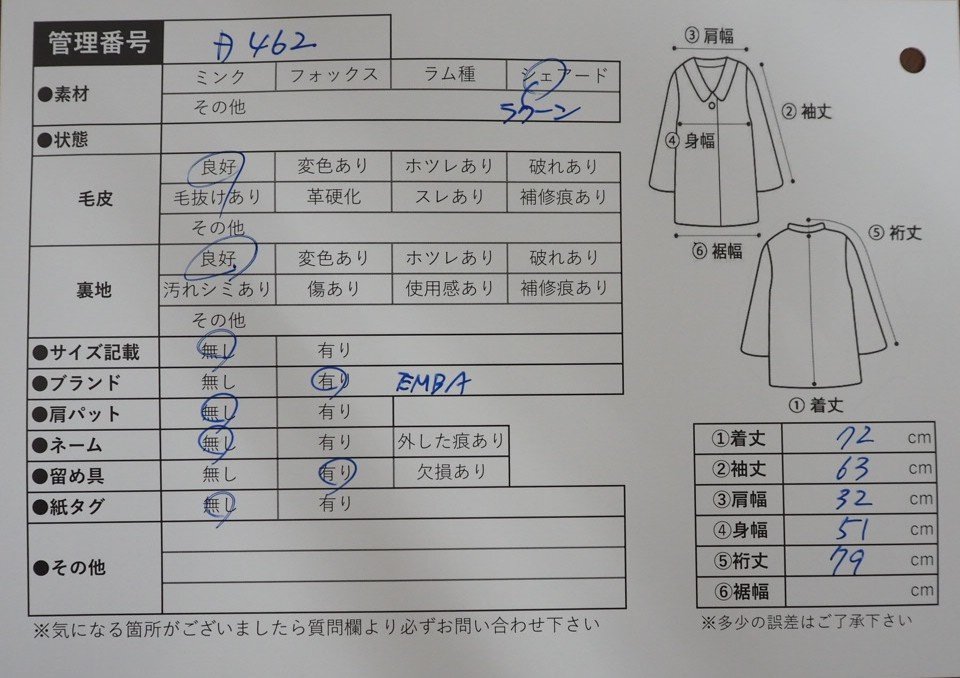 管理番号 A 462
●素材 ミンク フォックス ラム種 シェアード
その他 ラクーン
●状態
毛皮 良好 変色あり ホツレあり 破れあり
毛抜けあり 革硬化 スレあり 補修痕あり
その他
裏地 良好 変色あり ホツレあり 破れあり
汚れシミあり 傷あり 使用感あり 補修痕あり
その他
●サイズ記載 無し 有り
●ブランド 無し 有り EMBA
●肩パット 無し 有り
●ネーム 無し 有り 外した痕あり
●留め具 無し 有り 欠損あり
●紙タグ 無し 有り
●その他
※気になる箇所がございましたら質問欄より必ずお問い合わせ下さい
③肩幅
②袖丈
④身幅
⑥裾幅
⑤裄丈
①着丈
①着丈 72 cm
②袖丈 63 cm
③肩幅 32 cm
④身幅 51 cm
⑤裄丈 79 cm
⑥裾幅 cm
※多少の誤差はご了承下さい